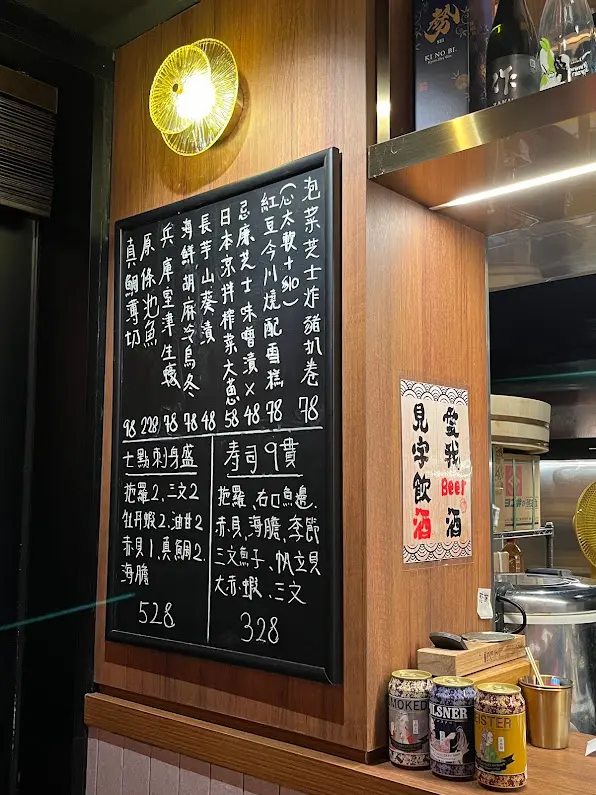 泡菜芝士炸豬扒卷 78
(心太軟+$10)
紅豆今川燒配雪糕 48
忌廉芝士味噌漬 x 48
日本涼拌榨菜大蔥 58
長芋山葵漬 48
海鮮胡麻冷烏冬 78
兵庫室津生蠔 78
原條池魚 228
真鯛薄切 98
七點刺身盛
拖羅2、三文2
牡丹蝦2、油甘2
赤貝1、真鯛2
海膽
528
寿司9貫
拖羅、右口魚邊、
赤貝、海膽、季節
三文魚子、帆立貝
大赤蝦、三文
328
愛我Beer酒
見字飲酒
勢
SEI
KI NO BI
作
SMOKED
PILSNER
MEISTER